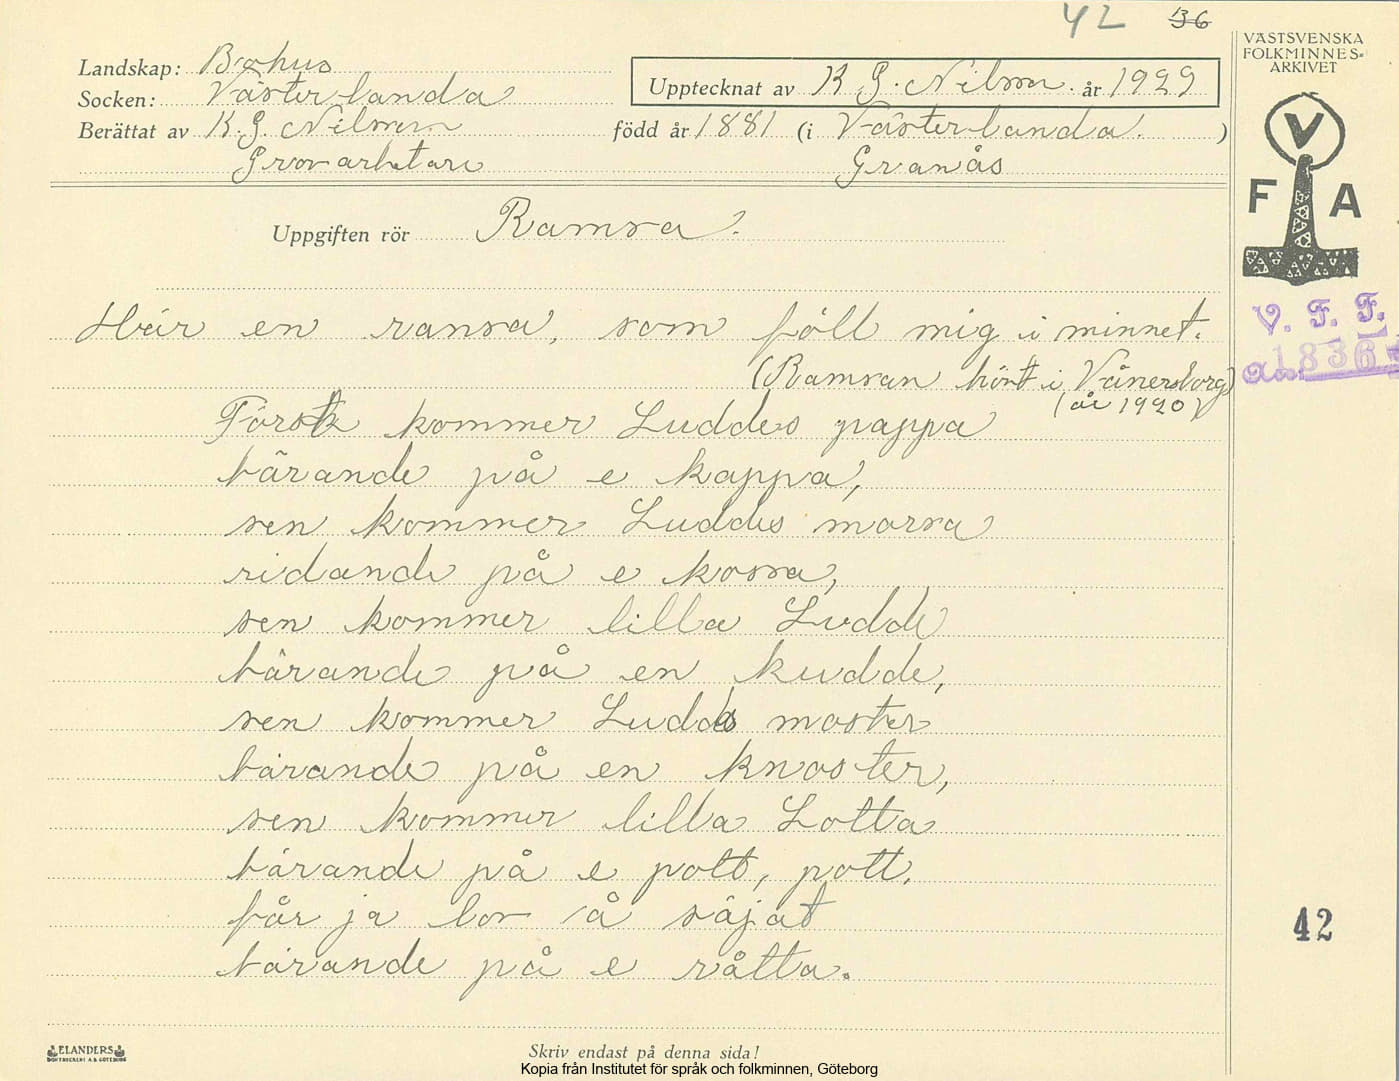 42 36
VÄSTSVENSKA
FOLKMINNES-
ARKIVET
Landskap: Bohus
Socken: Västerlanda
Upptecknat av K G. Nilsson. år 1929
Berättat av K. G. Nilsson född år 1881 (i Västerlanda. )
Grovarbetare Granås
V
F A
Uppgiften rör Ramsa.
V. F. F.
1836
Här en ramsa, som föll mig i minnet.
(Ramsan hört i Vänersborg)
(år 1920)
Först kommer Luddes pappa
bärande på e kappa,
sen kommer Luddes morsa
ridande på e kossa,
sen kommer lilla Ludde
bärande på en kudde,
sen kommer Luddes moster
bärande på en knoster,
sen kommer lilla Lotta
bärande på e pott, pott,
får ja lov å säjat
bärande på e råtta.
42
ELANDERS
BOKTRYCKERI A.B. GÖTEBORG
Skriv endast på denna sida!
Kopia från Institutet för språk och folkminnen, Göteborg